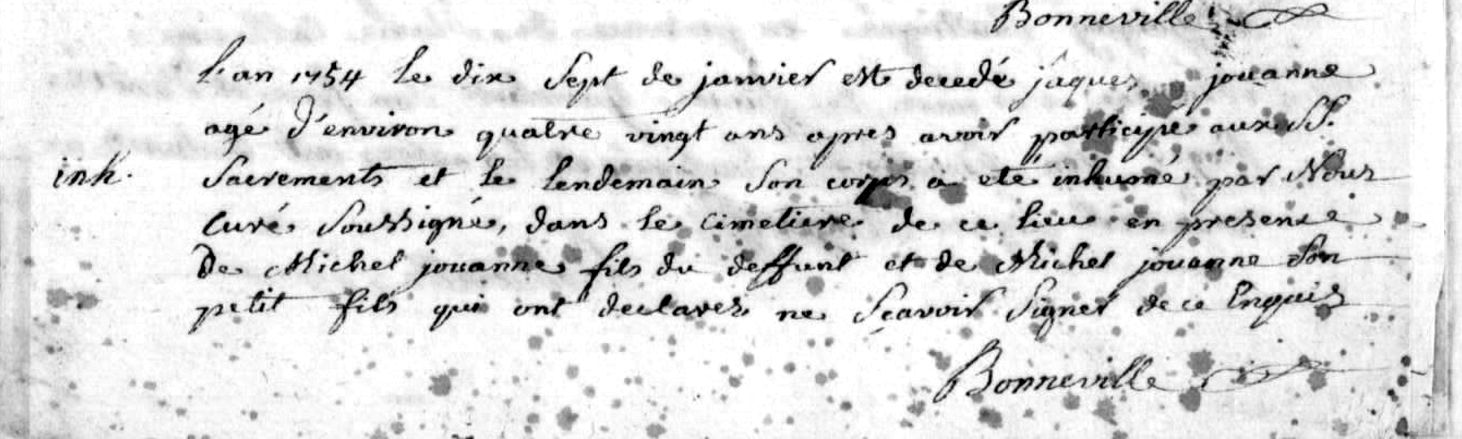 Bonneville
L'an 1754 le dix sept de janvier est decedé jâques jouanne
agé d'environ quatre vingt ans apres avoir participé aux SS.
inh. Sacrements et le lendemain son corps a eté inhumé par Nous
curé soussigné, dans le cimetiere de ce lieu en presence
de Michel jouanne fils du deffunt et de Michel jouanne son
petit fils qui ont declarez ne sçavoir signer de ce Enquis
Bonneville